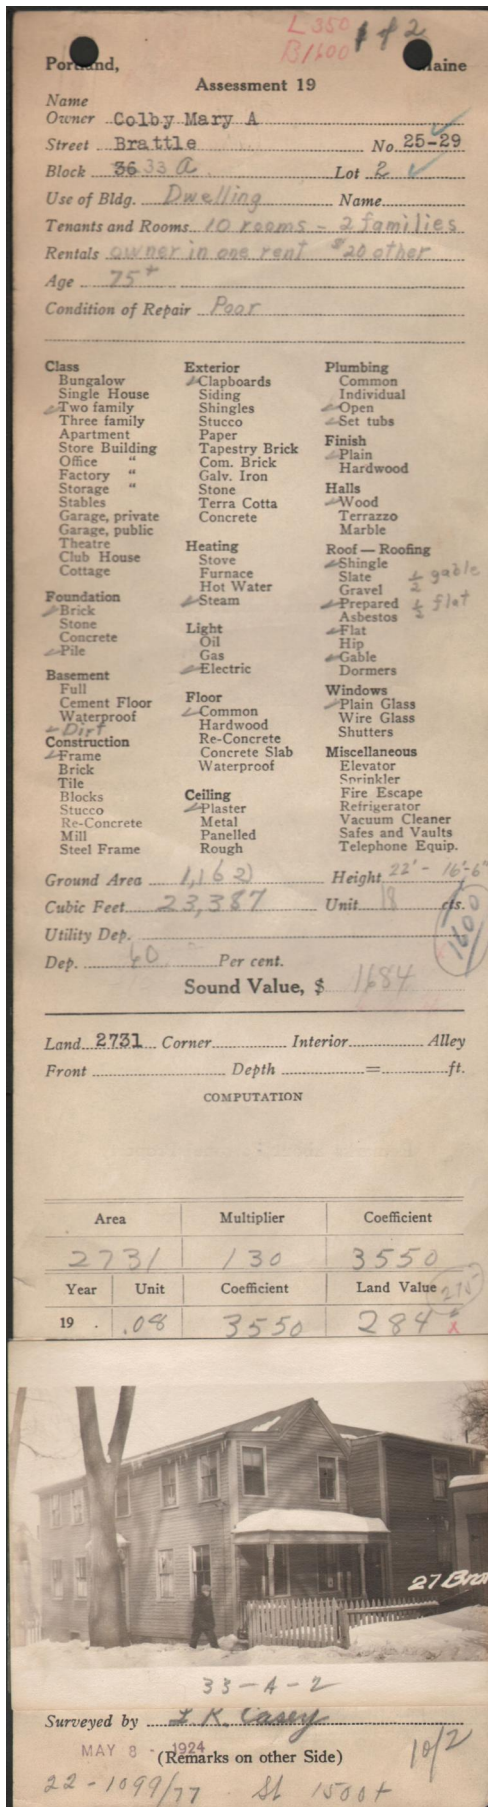 L 350
B 1600
1 + 2
Portland, Maine
Assessment 19
Name
Owner Colby Mary A
Street Brattle No. 25-29
Block 36 33 A Lot 2
Use of Bldg. Dwelling Name
Tenants and Rooms 10 rooms - 2 families
Rentals owner in one rent $20 other
Age 75+
Condition of Repair Poor
Class
Bungalow
Single House
Two family
Three family
Apartment
Store Building
Office "
Factory "
Storage "
Stables
Garage, private
Garage, public
Theatre
Club House
Cottage
Foundation
Brick
Stone
Concrete
Pile
Basement
Full
Cement Floor
Waterproof
Dirt
Construction
Frame
Brick
Tile
Blocks
Stucco
Re-Concrete
Mill
Steel Frame
Exterior
Clapboards
Siding
Shingles
Stucco
Paper
Tapestry Brick
Com. Brick
Galv. Iron
Stone
Terra Cotta
Concrete
Heating
Stove
Furnace
Hot Water
Steam
Light
Oil
Gas
Electric
Floor
Common
Hardwood
Re-Concrete
Concrete Slab
Waterproof
Ceiling
Plaster
Metal
Panelled
Rough
Plumbing
Common
Individual
Open
Set tubs
Finish
Plain
Hardwood
Halls
Wood
Terrazzo
Marble
Roof — Roofing
Shingle
Slate ½ gable
Gravel
Prepared ½ flat
Asbestos
Flat
Hip
Gable
Dormers
Windows
Plain Glass
Wire Glass
Shutters
Miscellaneous
Elevator
Sprinkler
Fire Escape
Refrigerator
Vacuum Cleaner
Safes and Vaults
Telephone Equip.
Ground Area 1,162 Height 22' - 16'-6"
Cubic Feet 23,387 Unit 18 cts.
1600
Utility Dep.
Dep. 60 Per cent.
Sound Value, $ 1684
Land 2731 Corner Interior Alley
Front Depth = ft.
COMPUTATION
Area Multiplier Coefficient
2731 130 3550
Year Unit Coefficient Land Value 275
19 . .08 3550 284
27 Brat
33-A-2
Surveyed by L K. Casey
MAY 8 - 1924
(Remarks on other Side)
10/2
22-1099/77 St 1500+